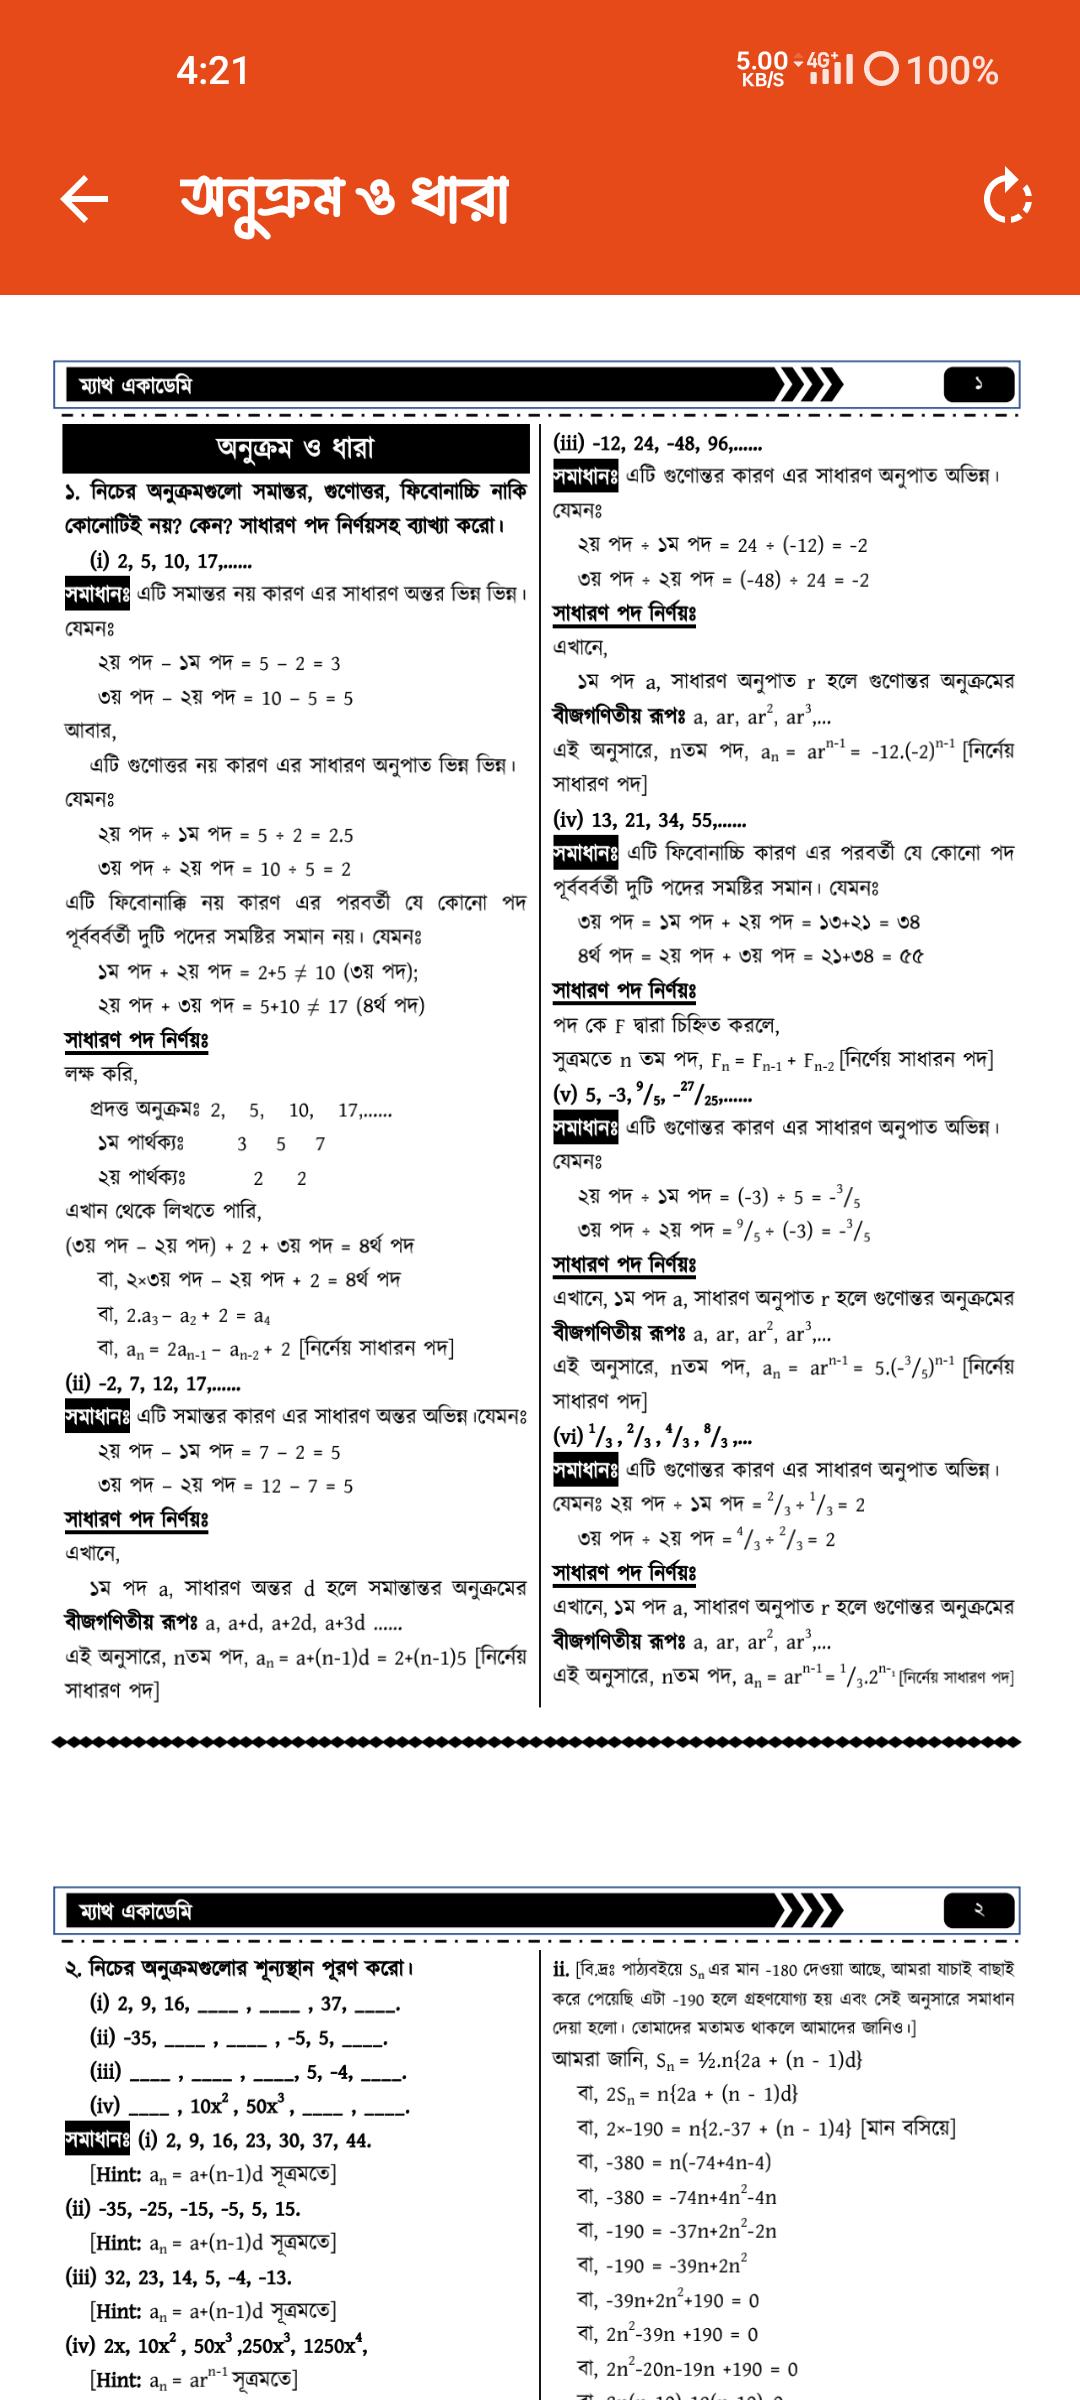 4:21
5.00 KB/S 4G+ 100%
অনুক্রম ও ধারা
ম্যাথ একাডেমি
১
অনুক্রম ও ধারা
১. নিচের অনুক্রমগুলো সমান্তর, গুণোত্তর, ফিবোনাচ্চি নাকি
কোনোটিই নয়? কেন? সাধারণ পদ নির্ণয়সহ ব্যাখ্যা করো।
(i) 2, 5, 10, 17,......
সমাধানঃ এটি সমান্তর নয় কারণ এর সাধারণ অন্তর ভিন্ন ভিন্ন।
যেমনঃ
২য় পদ – ১ম পদ = 5 – 2 = 3
৩য় পদ – ২য় পদ = 10 – 5 = 5
আবার,
এটি গুণোত্তর নয় কারণ এর সাধারণ অনুপাত ভিন্ন ভিন্ন।
যেমনঃ
২য় পদ ÷ ১ম পদ = 5 ÷ 2 = 2.5
৩য় পদ ÷ ২য় পদ = 10 ÷ 5 = 2
এটি ফিবোনাক্কি নয় কারণ এর পরবর্তী যে কোনো পদ
পূর্ববর্বর্তী দুটি পদের সমষ্টির সমান নয়। যেমনঃ
১ম পদ + ২য় পদ = 2+5 ≠ 10 (৩য় পদ);
২য় পদ + ৩য় পদ = 5+10 ≠ 17 (৪র্থ পদ)
সাধারণ পদ নির্ণয়ঃ
লক্ষ করি,
প্রদত্ত অনুক্রমঃ 2, 5, 10, 17,......
১ম পার্থক্যঃ 3 5 7
২য় পার্থক্যঃ 2 2
এখান থেকে লিখতে পারি,
(৩য় পদ – ২য় পদ) + 2 + ৩য় পদ = ৪র্থ পদ
বা, ২×৩য় পদ – ২য় পদ + 2 = ৪র্থ পদ
বা, 2.a₃ – a₂ + 2 = a₄
বা, aₙ = 2aₙ₋₁ – aₙ₋₂ + 2 [নির্নেয় সাধারন পদ]
(ii) -2, 7, 12, 17,......
সমাধানঃ এটি সমান্তর কারণ এর সাধারণ অন্তর অভিন্ন।যেমনঃ
২য় পদ – ১ম পদ = 7 – 2 = 5
৩য় পদ – ২য় পদ = 12 – 7 = 5
সাধারণ পদ নির্ণয়ঃ
এখানে,
১ম পদ a, সাধারণ অন্তর d হলে সমান্তান্তর অনুক্রমের
বীজগণিতীয় রূপঃ a, a+d, a+2d, a+3d ......
এই অনুসারে, nতম পদ, aₙ = a+(n-1)d = 2+(n-1)5 [নির্নেয়
সাধারণ পদ]
(iii) -12, 24, -48, 96,......
সমাধানঃ এটি গুণোন্তর কারণ এর সাধারণ অনুপাত অভিন্ন।
যেমনঃ
২য় পদ ÷ ১ম পদ = 24 ÷ (-12) = -2
৩য় পদ ÷ ২য় পদ = (-48) ÷ 24 = -2
সাধারণ পদ নির্ণয়ঃ
এখানে,
১ম পদ a, সাধারণ অনুপাত r হলে গুণোন্তর অনুক্রমের
বীজগণিতীয় রূপঃ a, ar, ar², ar³,...
এই অনুসারে, nতম পদ, aₙ = arⁿ⁻¹ = -12.(-2)ⁿ⁻¹ [নির্নেয়
সাধারণ পদ]
(iv) 13, 21, 34, 55,......
সমাধানঃ এটি ফিবোনাচ্চি কারণ এর পরবর্তী যে কোনো পদ
পূর্ববর্বর্তী দুটি পদের সমষ্টির সমান। যেমনঃ
৩য় পদ = ১ম পদ + ২য় পদ = ১৩+২১ = ৩৪
৪র্থ পদ = ২য় পদ + ৩য় পদ = ২১+৩৪ = ৫৫
সাধারণ পদ নির্ণয়ঃ
পদ কে F দ্বারা চিহ্নিত করলে,
সুত্রমতে n তম পদ, Fₙ = Fₙ₋₁ + Fₙ₋₂ [নির্ণেয় সাধারন পদ]
(v) 5, -3, ⁹/₅, -²⁷/₂₅,......
সমাধানঃ এটি গুণোন্তর কারণ এর সাধারণ অনুপাত অভিন্ন।
যেমনঃ
২য় পদ ÷ ১ম পদ = (-3) ÷ 5 = -³/₅
৩য় পদ ÷ ২য় পদ = ⁹/₅ ÷ (-3) = -³/₅
সাধারণ পদ নির্ণয়ঃ
এখানে, ১ম পদ a, সাধারণ অনুপাত r হলে গুণোন্তর অনুক্রমের
বীজগণিতীয় রূপঃ a, ar, ar², ar³,...
এই অনুসারে, nতম পদ, aₙ = arⁿ⁻¹ = 5.(-³/₅)ⁿ⁻¹ [নির্নেয়
সাধারণ পদ]
(vi) ¹/₃ , ²/₃ , ⁴/₃ , ⁸/₃ ,...
সমাধানঃ এটি গুণোন্তর কারণ এর সাধারণ অনুপাত অভিন্ন।
যেমনঃ ২য় পদ ÷ ১ম পদ = ²/₃ ÷ ¹/₃ = 2
৩য় পদ ÷ ২য় পদ = ⁴/₃ ÷ ²/₃ = 2
সাধারণ পদ নির্ণয়ঃ
এখানে, ১ম পদ a, সাধারণ অনুপাত r হলে গুণোন্তর অনুক্রমের
বীজগণিতীয় রূপঃ a, ar, ar², ar³,...
এই অনুসারে, nতম পদ, aₙ = arⁿ⁻¹ = ¹/₃.2ⁿ⁻¹ [নির্নেয় সাধারণ পদ]
ম্যাথ একাডেমি
২
২. নিচের অনুক্রমগুলোর শূন্যস্থান পূরণ করো।
(i) 2, 9, 16, ____ , ____ , 37, ____.
(ii) -35, ____ , ____ , -5, 5, ____.
(iii) ____ , ____ , ____, 5, -4, ____.
(iv) ____ , 10x² , 50x³ , ____ , ____.
সমাধানঃ (i) 2, 9, 16, 23, 30, 37, 44.
[Hint: aₙ = a+(n-1)d সূত্রমতে]
(ii) -35, -25, -15, -5, 5, 15.
[Hint: aₙ = a+(n-1)d সূত্রমতে]
(iii) 32, 23, 14, 5, -4, -13.
[Hint: aₙ = a+(n-1)d সূত্রমতে]
(iv) 2x, 10x² , 50x³ ,250x³, 1250x⁴,
[Hint: aₙ = arⁿ⁻¹ সূত্রমতে]
ii. [বি.দ্রঃ পাঠ্যবইয়ে Sₙ এর মান -180 দেওয়া আছে, আমরা যাচাই বাছাই
করে পেয়েছি এটা -190 হলে গ্রহণযোগ্য হয় এবং সেই অনুসারে সমাধান
দেয়া হলো। তোমাদের মতামত থাকলে আমাদের জানিও।]
আমরা জানি, Sₙ = ½.n{2a + (n - 1)d}
বা, 2Sₙ = n{2a + (n - 1)d}
বা, 2×-190 = n{2.-37 + (n - 1)4} [মান বসিয়ে]
বা, -380 = n(-74+4n-4)
বা, -380 = -74n+4n²-4n
বা, -190 = -37n+2n²-2n
বা, -190 = -39n+2n²
বা, -39n+2n²+190 = 0
বা, 2n²-39n +190 = 0
বা, 2n²-20n-19n +190 = 0